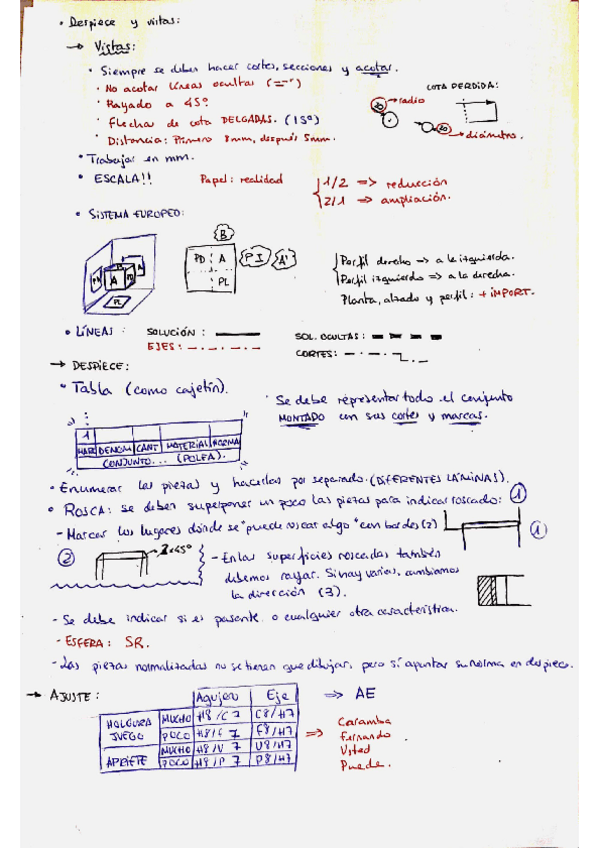 • Despiece y vistas:
→ Vistas:
• Siempre se deben hacer cortes, secciones y acotar.
• No acotar líneas ocultas (=--)
• Rayado a 45º
• Flechas de cota DELGADAS. (15º)
• Distancia: Primero 8mm, después 5mm.
COTA PERDIDA:
→ radio
→ diámetro.
• Trabajar en mm.
• ESCALA!! Papel: realidad
1/2 => reducción
2/1 => ampliación.
• SISTEMA EUROPEO:
B
PD A PI A'
PL
Perfil derecho => a la izquierda.
Perfil izquierdo => a la derecha.
Planta, alzado y perfil: + IMPORT.
• LÍNEAS: SOLUCIÓN: SOL. OCULTAS:
EJES: CORTES:
→ DESPIECE:
• Tabla (como cajetín).
• Se debe representar todo el conjunto
MONTADO con sus cortes y marcas.
1
MAR DENOM CANT MATERIAL NORMA
CONJUNTO... (POLEA).
• Enumerar las piezas y hacerlas por separado. (DIFERENTES LÁMINAS).
• ROSCA: se deben superponer un poco las piezas para indicar roscado: 1
- Marcar los lugares donde se "puede roscar algo" con bordes (2)
1
2
2x45º
- En las superficies roscadas también
debemos rayar. Si hay varias, cambiamos
la dirección (3).
- Se debe indicar si es pasante o cualquier otra característica.
- ESFERA: SR.
- Las piezas normalizadas no se tienen que dibujar, pero sí apuntar su norma en despiece.
→ AJUSTE:
Agujero Eje => AE
HOLGURA JUEGO MUCHO H8/C7 C8/H7
POCO H8/F7 F8/H7
APRIETE MUCHO H8/U7 U8/H7
POCO H8/P7 P8/H7
=> Caramba
Fernando
Usted
Puede.